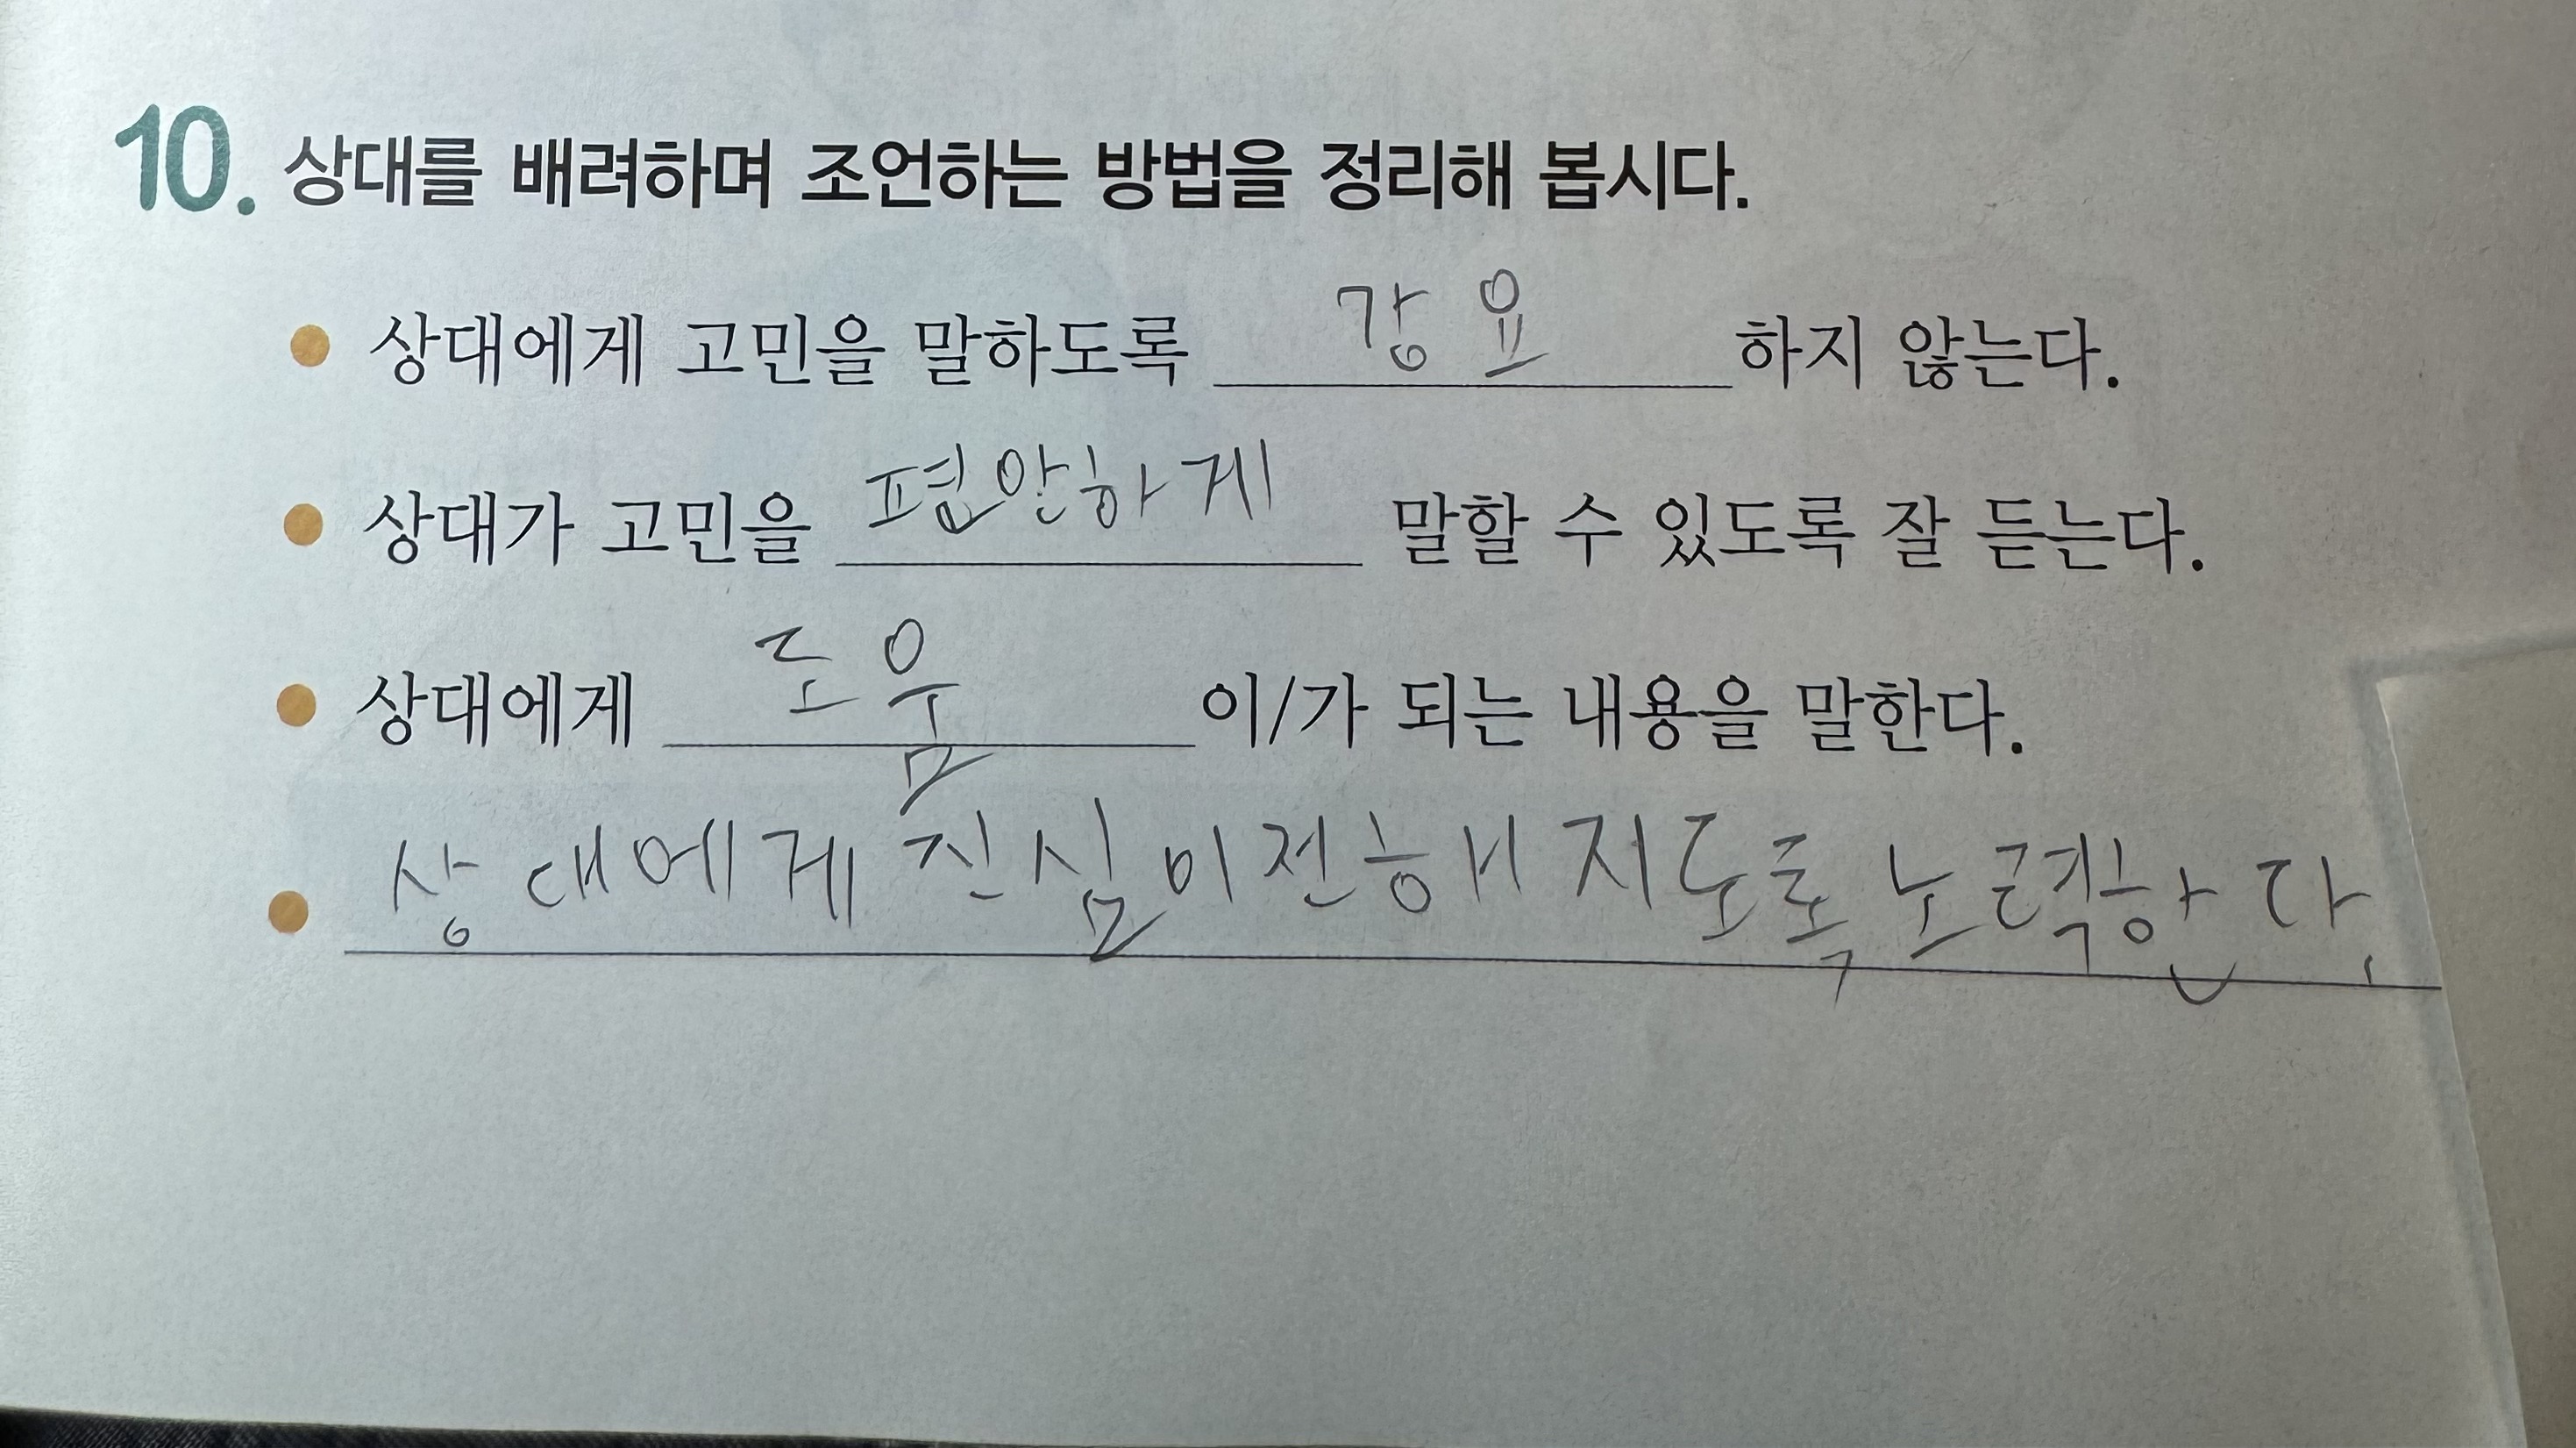 10. 상대를 배려하며 조언하는 방법을 정리해 봅시다.
● 상대에게 고민을 말하도록 강요 하지 않는다.
● 상대가 고민을 편안하게 말할 수 있도록 잘 듣는다.
● 상대에게 도움 이/가 되는 내용을 말한다.
● 상대에게 진심이 전해지도록 노력한다.